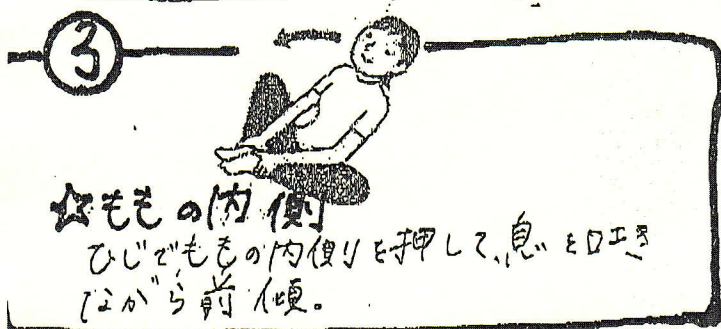 3
☆ももの内側
ひじでももの内側を押して、息を吐き
ながら前傾。